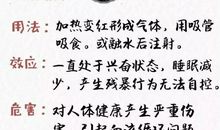 用法：加热变红形成气体，用吸管
吸食。或融水后注射。
效应：一直处于兴奋状态，睡眠减
少，产生残暴行为无法自控。
危害：对人体健康产生严重伤